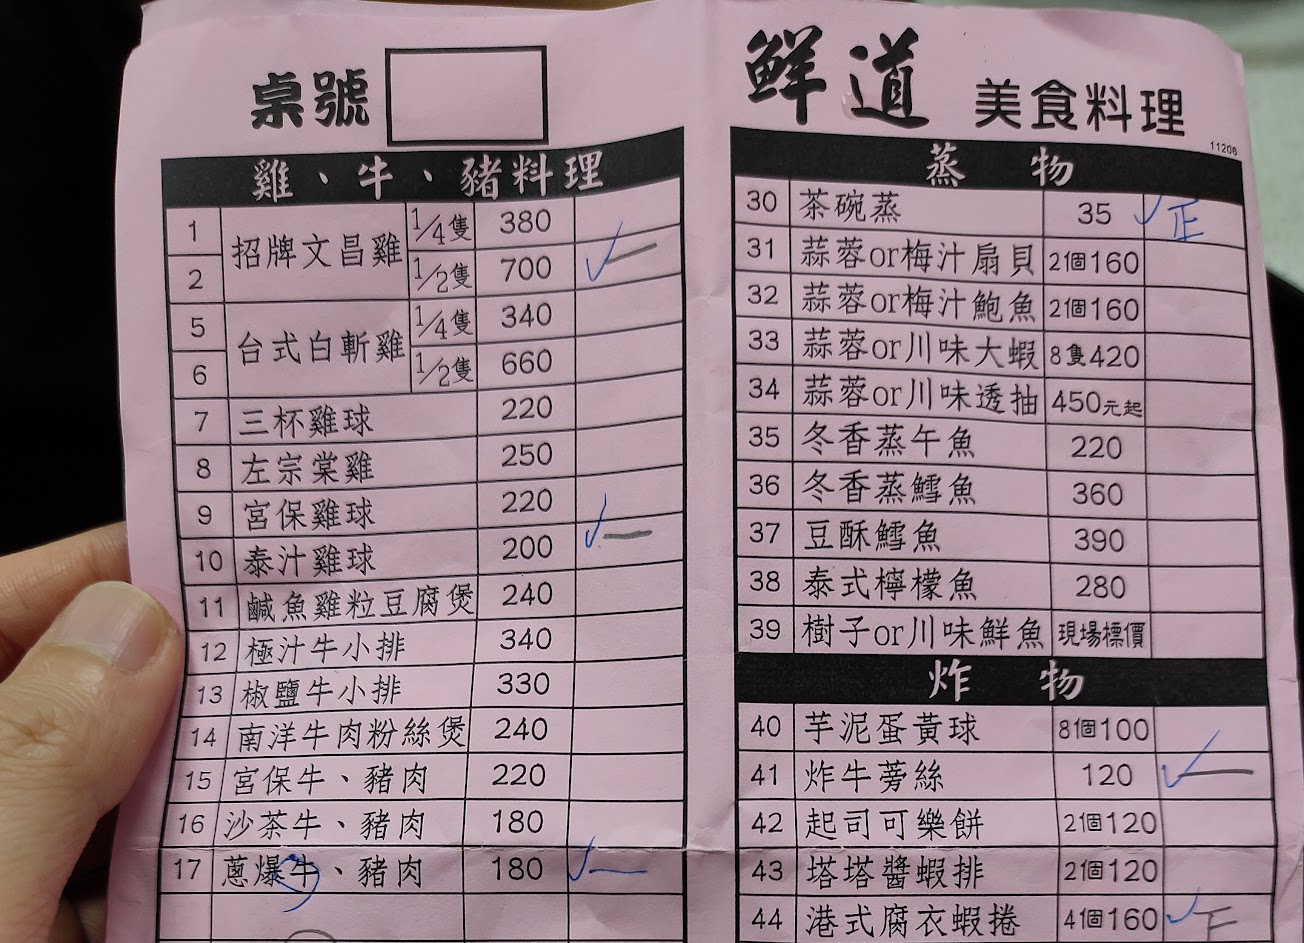 桌號
雞、牛、豬料理
1 招牌文昌雞 1/4隻 380
2 1/2隻 700 ✓一
5 台式白斬雞 1/4隻 340
6 1/2隻 660
7 三杯雞球 220
8 左宗棠雞 250
9 宮保雞球 220
10 泰汁雞球 200 ✓一
11 鹹魚雞粒豆腐煲 240
12 極汁牛小排 340
13 椒鹽牛小排 330
14 南洋牛肉粉絲煲 240
15 宮保牛、豬肉 220
16 沙茶牛、豬肉 180
17 蔥爆牛、豬肉 180 ✓一
鮮道 美食料理
11206
蒸物
30 茶碗蒸 35 ✓正
31 蒜蓉or梅汁扇貝 2個160
32 蒜蓉or梅汁鮑魚 2個160
33 蒜蓉or川味大蝦 8隻420
34 蒜蓉or川味透抽 450元起
35 冬香蒸午魚 220
36 冬香蒸鱈魚 360
37 豆酥鱈魚 390
38 泰式檸檬魚 280
39 樹子or川味鮮魚 現場標價
炸物
40 芋泥蛋黃球 8個100
41 炸牛蒡絲 120 ✓一
42 起司可樂餅 2個120
43 塔塔醬蝦排 2個120
44 港式腐衣蝦捲 4個160 ✓